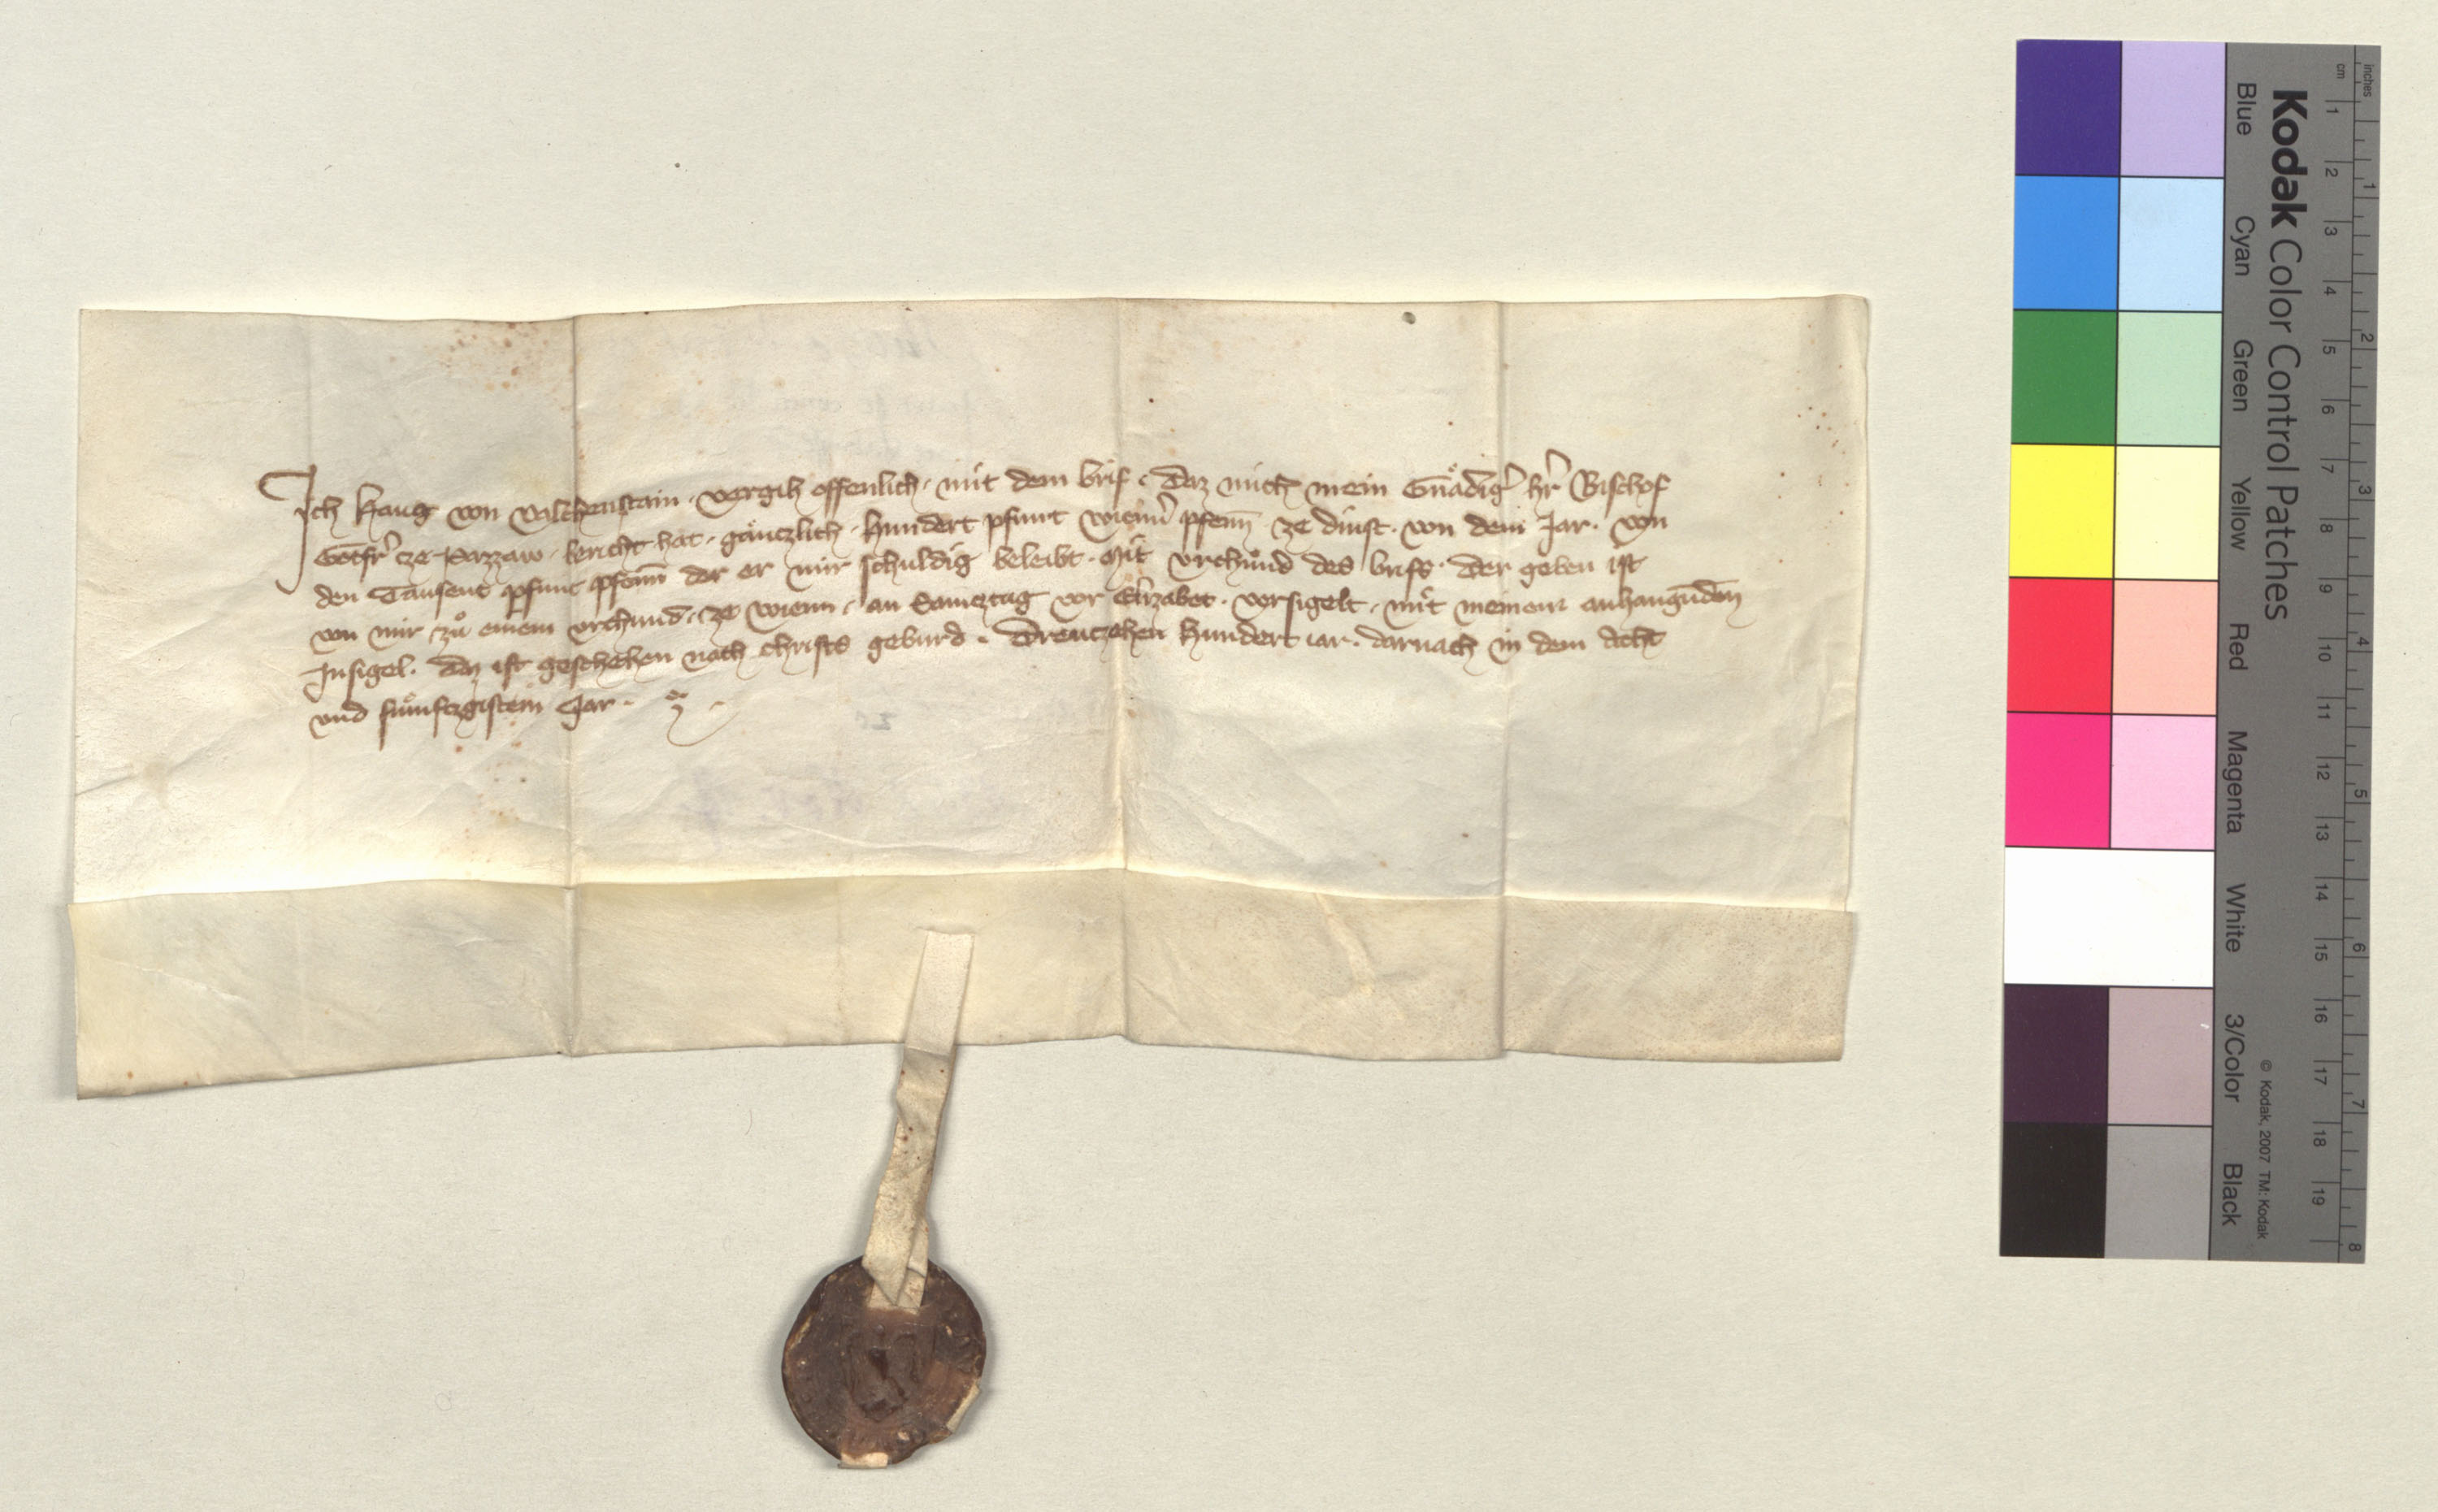 Ich Haug von Valchenstain . vergih offenlich . mit dem brif . daz mich mein Gnädig' h'r Bischof
Gotfr' ze Pazzaw . bericht hat . gäntzlich . Hundert pfunt wienn' pfenn̄ ze dinst . von dem Jar . von
den Tausent pfunt pfenn̄ der er mir schuldig beleibt . Mit vrchůnd des brifs . Der geben ist
von mir zů einem vrchund . ze wienn . an Samcztag vor Elyzabet . versigelt . mit meinem anhangūdēn
Insigel . Daz ist geschehen nach christs geburd . Dreutzehen Hundert iar . darnach in dem Acht
vnd fünftzgistem Jar .
Kodak Color Control Patches
Blue Cyan Green Yellow Red Magenta White 3/Color Black
© Kodak, 2007 TM: Kodak
inches 1 2 3 4 5 6 7 8
cm 1 2 3 4 5 6 7 8 9 10 11 12 13 14 15 16 17 18 19